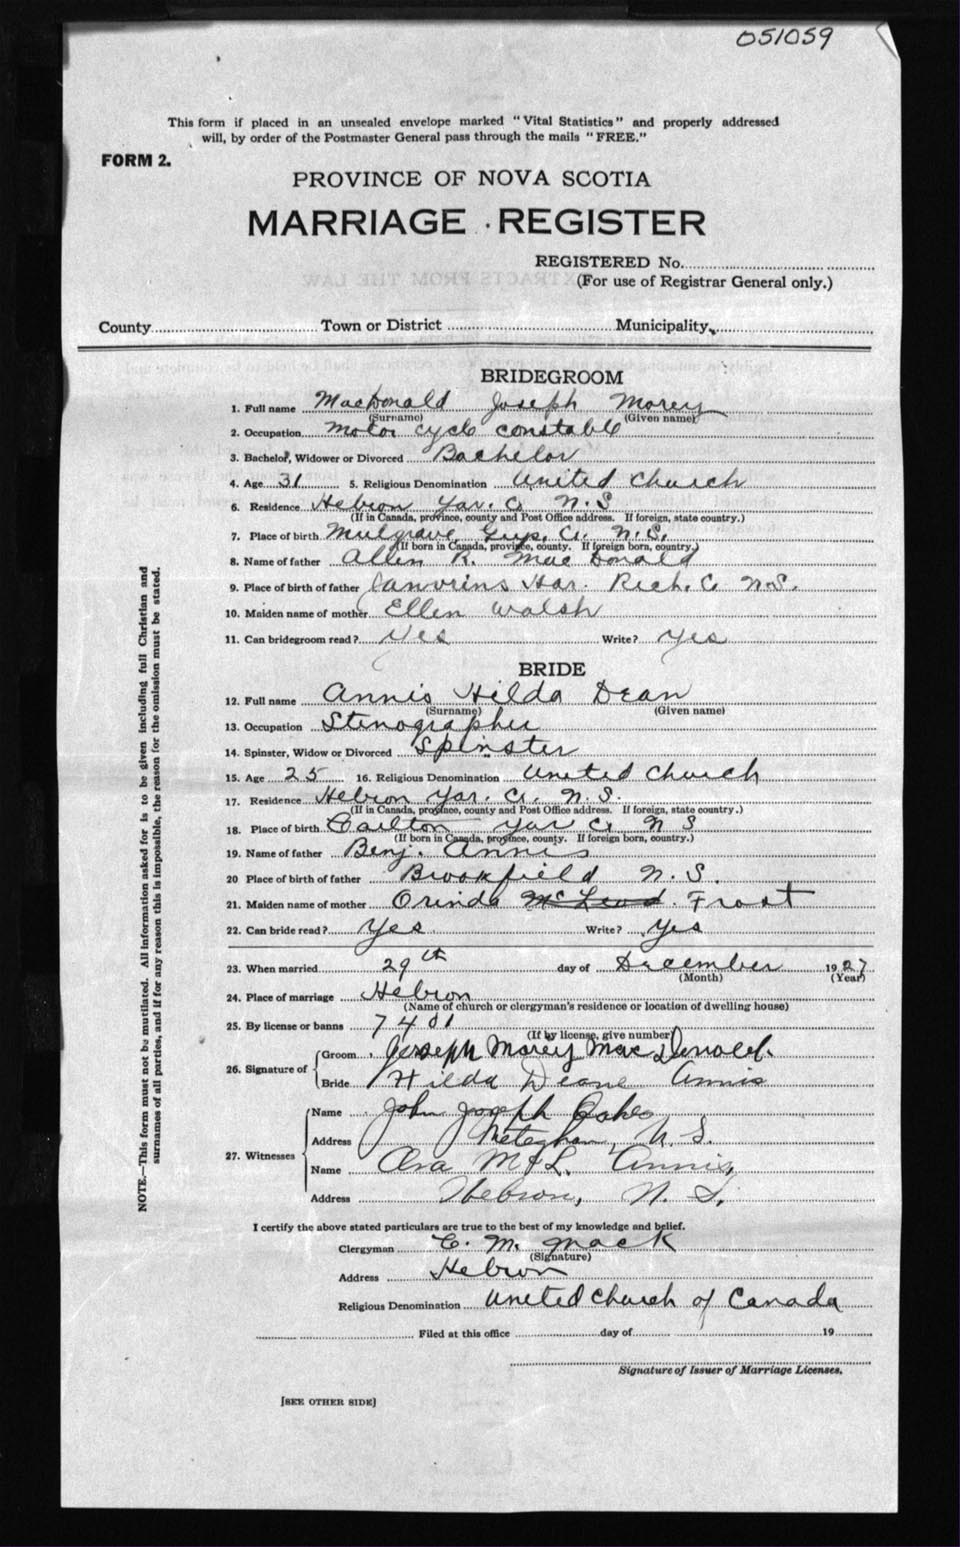 051059
This form if placed in an unsealed envelope marked "Vital Statistics" and properly addressed
will, by order of the Postmaster General pass through the mails "FREE."
FORM 2.
PROVINCE OF NOVA SCOTIA
MARRIAGE REGISTER
REGISTERED No.
(For use of Registrar General only.)
County Town or District Municipality
BRIDEGROOM
1. Full name MacDonald Joseph Morey
(Surname) (Given name)
2. Occupation Motor cycle constable
3. Bachelor, Widower or Divorced Bachelor
4. Age 31 5. Religious Denomination United Church
6. Residence Hebron Yar. Co N.S
(If in Canada, province, county and Post Office address. If foreign, state country.)
7. Place of birth Mulgrave Guys. Co. N.S.
(If born in Canada, province, county. If foreign born, country.)
8. Name of father Allen R. MacDonald
9. Place of birth of father Janvrins Har. Rich. Co N.S.
10. Maiden name of mother Ellen Walsh
11. Can bridegroom read? Yes Write? Yes
BRIDE
12. Full name Annis Hilda Dean
(Surname) (Given name)
13. Occupation Stenographer
14. Spinster, Widow or Divorced Spinster
15. Age 25 16. Religious Denomination United Church
17. Residence Hebron Yar. Co. N.S.
(If in Canada, province, county and Post Office address. If foreign, state country.)
18. Place of birth Carlton Yar Co N S
(If born in Canada, province, county. If foreign born, country.)
19. Name of father Benj. Annis
20 Place of birth of father Brookfield N.S.
21. Maiden name of mother Orinda McLeod. Frost
22. Can bride read? Yes Write? Yes
23. When married 29th day of December 1927
(Month) (Year)
24. Place of marriage Hebron
(Name of church or clergyman's residence or location of dwelling house)
25. By license or banns 7401
(If by license, give number)
26. Signature of Groom Joseph Morey MacDonald.
Bride Hilda Deane Annis
27. Witnesses Name John Joseph
Address Meteghan, N.S.
Name Ora McL. Annis,
Address Hebron, N.S.
I certify the above stated particulars are true to the best of my knowledge and belief.
Clergyman C. M. Mack
(Signature)
Address Hebron
Religious Denomination United Church of Canada
Filed at this office day of 19
Signature of Issuer of Marriage Licenses.
[SEE OTHER SIDE]
NOTE.—This form must not be mutilated. All information asked for is to be given including full Christian and
surnames of all parties, and if for any reason this is impossible, the reason for the omission must be stated.